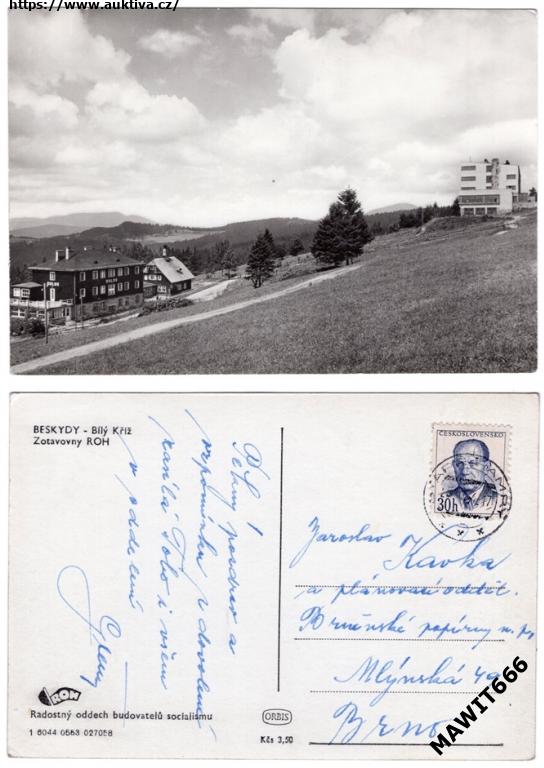 https://www.auktiva.cz/
SULOV
BESKYDY - Bílý Kříž
Zotavovny ROH
pozdrav a
vzpomínku z dovolené
zasílá Tobě i všem
v oddělení
ČESKOSLOVENSKO
30h
Jaroslav Kavka
a plánovací odděl.
Brněnské papírny n.p.
Mlýnská
Brno
ROH
Radostný oddech budovatelů socialismu
1 6044 0563 027058
ORBIS
Kčs 3,50
MAWIT666